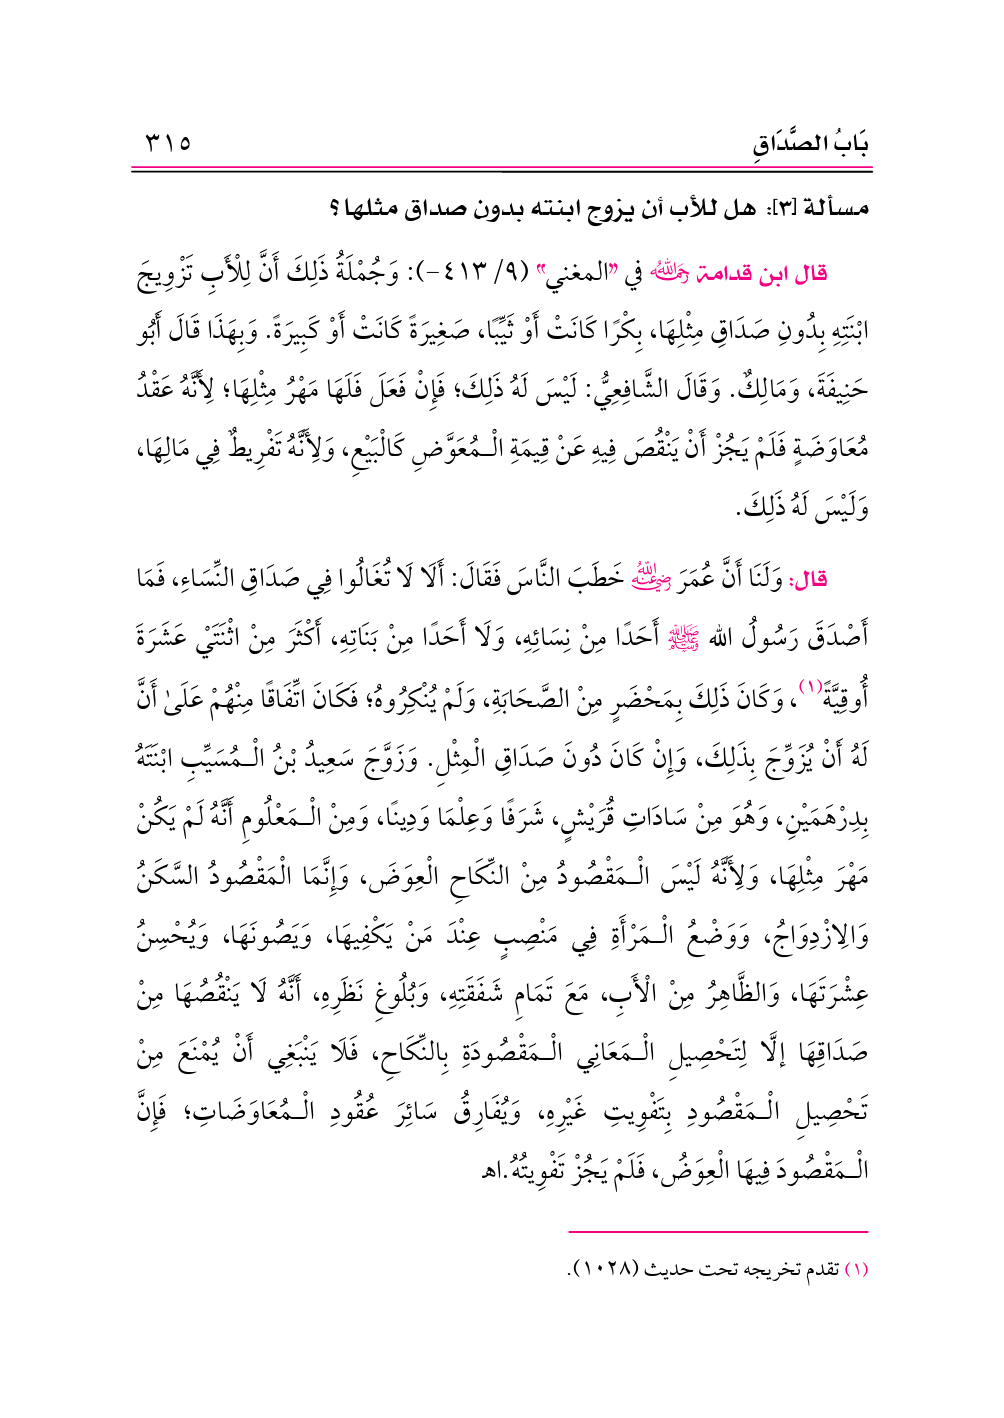 بَابُ الصَّدَاقِ ٣١٥
مسألة [٣]: هل للأب أن يزوج ابنته بدون صداق مثلها؟
قال ابن قدامة رَحِمَهُ اللَّهُ في «المغني» (٩/ ٤١٣-): وَجُمْلَةُ ذَلِكَ أَنَّ لِلْأَبِ تَزْوِيجَ
ابْنَتِهِ بِدُونِ صَدَاقِ مِثْلِهَا، بِكْرًا كَانَتْ أَوْ ثَيِّبًا، صَغِيرَةً كَانَتْ أَوْ كَبِيرَةً. وَبِهَذَا قَالَ أَبُو
حَنِيفَةَ، وَمَالِكٌ. وَقَالَ الشَّافِعِيُّ: لَيْسَ لَهُ ذَلِكَ؛ فَإِنْ فَعَلَ فَلَهَا مَهْرُ مِثْلِهَا؛ لِأَنَّهُ عَقْدُ
مُعَاوَضَةٍ فَلَمْ يَجُزْ أَنْ يَنْقُصَ فِيهِ عَنْ قِيمَةِ الْـمُعَوَّضِ كَالْبَيْعِ، وَلِأَنَّهُ تَفْرِيطٌ فِي مَالِهَا،
وَلَيْسَ لَهُ ذَلِكَ.
قال: وَلَنَا أَنَّ عُمَرَ رَضِيَ اللَّهُ عَنْهُ خَطَبَ النَّاسَ فَقَالَ: أَلَا لَا تُغَالُوا فِي صَدَاقِ النِّسَاءِ، فَمَا
أَصْدَقَ رَسُولُ الله ﷺ أَحَدًا مِنْ نِسَائِهِ، وَلَا أَحَدًا مِنْ بَنَاتِهِ، أَكْثَرَ مِنْ اثْنَتَيْ عَشَرَةَ
أُوقِيَّةً(١)، وَكَانَ ذَلِكَ بِمَحْضَرٍ مِنْ الصَّحَابَةِ، وَلَمْ يُنْكِرُوهُ؛ فَكَانَ اتِّفَاقًا مِنْهُمْ عَلَىٰ أَنَّ
لَهُ أَنْ يُزَوِّجَ بِذَلِكَ، وَإِنْ كَانَ دُونَ صَدَاقِ الْمِثْلِ. وَزَوَّجَ سَعِيدُ بْنُ الْـمُسَيِّبِ ابْنَتَهُ
بِدِرْهَمَيْنِ، وَهُوَ مِنْ سَادَاتِ قُرَيْشٍ، شَرَفًا وَعِلْمًا وَدِينًا، وَمِنْ الْـمَعْلُومِ أَنَّهُ لَمْ يَكُنْ
مَهْرَ مِثْلِهَا، وَلِأَنَّهُ لَيْسَ الْـمَقْصُودُ مِنْ النِّكَاحِ الْعِوَضَ، وَإِنَّمَا الْمَقْصُودُ السَّكَنُ
وَالِازْدِوَاجُ، وَوَضْعُ الْـمَرْأَةِ فِي مَنْصِبٍ عِنْدَ مَنْ يَكْفِيهَا، وَيَصُونَهَا، وَيُحْسِنُ
عِشْرَتَهَا، وَالظَّاهِرُ مِنْ الْأَبِ، مَعَ تَمَامِ شَفَقَتِهِ، وَبُلُوغِ نَظَرِهِ، أَنَّهُ لَا يَنْقُصُهَا مِنْ
صَدَاقِهَا إلَّا لِتَحْصِيلِ الْـمَعَانِي الْـمَقْصُودَةِ بِالنِّكَاحِ، فَلَا يَنْبَغِي أَنْ يُمْنَعَ مِنْ
تَحْصِيلِ الْـمَقْصُودِ بِتَفْوِيتِ غَيْرِهِ، وَيُفَارِقُ سَائِرَ عُقُودِ الْـمُعَاوَضَاتِ؛ فَإِنَّ
الْـمَقْصُودَ فِيهَا الْعِوَضُ، فَلَمْ يَجُزْ تَفْوِيتُهُ.اﻫ
(١) تقدم تخريجه تحت حديث (١٠٢٨).